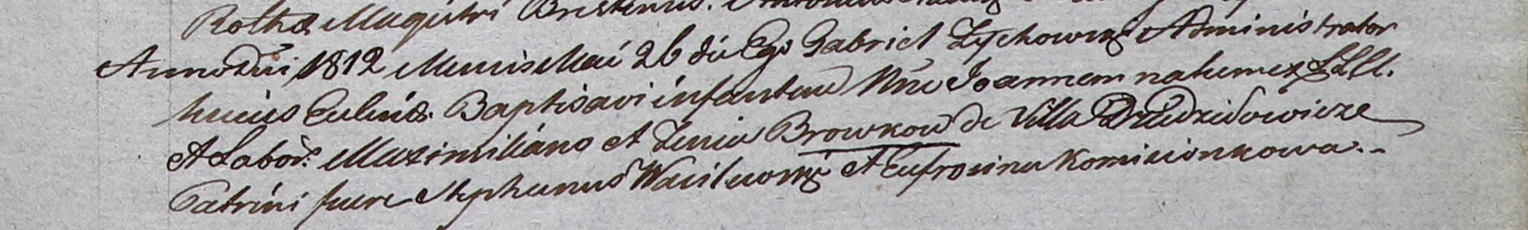 Rotha Magistri Brestensis.
Anno Dni 1812 Mensis Mai 26 die Ego Gabriel Zychowski Administrator
hucius Eccl. Baptisavi infantem Nne Joannem natum ex LLll.
A Labor: Maximiliano et Xenia Browkow de Villa Dziedzilowicze
Patrini fuere Stephanus Wasilewski et Eufrosina Komisionkowa.-